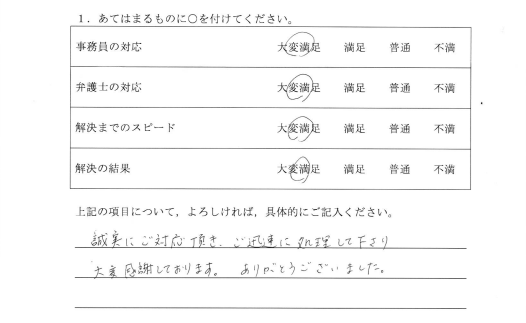 １．あてはまるものに○を付けてください。
事務員の対応 大変満足 満足 普通 不満
弁護士の対応 大変満足 満足 普通 不満
解決までのスピード 大変満足 満足 普通 不満
解決の結果 大変満足 満足 普通 不満
上記の項目について，よろしければ，具体的にご記入ください。
誠実にご対応頂き、ご迅速に処理して下さり
大変感謝しております。 ありがとうございました。